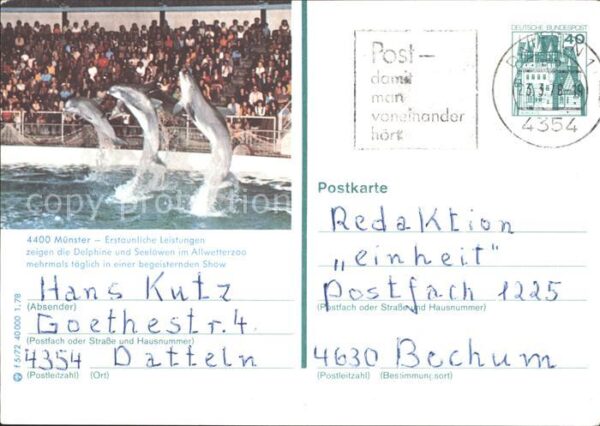 DEUTSCHE BUNDESPOST
40
Post-
damit
man
voneinander
hört
23.3.78-19
4354
copy protection
Postkarte
4400 Münster – Erstaunliche Leistungen
zeigen die Delphine und Seelöwen im Allwetterzoo
mehrmals täglich in einer begeisternden Show
Hans Kutz
(Absender)
Goethestr. 4.
(Postfach oder Straße und Hausnummer)
4354 Datteln
(Postleitzahl) (Ort)
f 5/72 40 000 1,78
Redaktion
„einheit"
Postfach 1225
(Postfach oder Straße und Hausnummer)
4630 Bochum
(Postleitzahl) (Bestimmungsort)